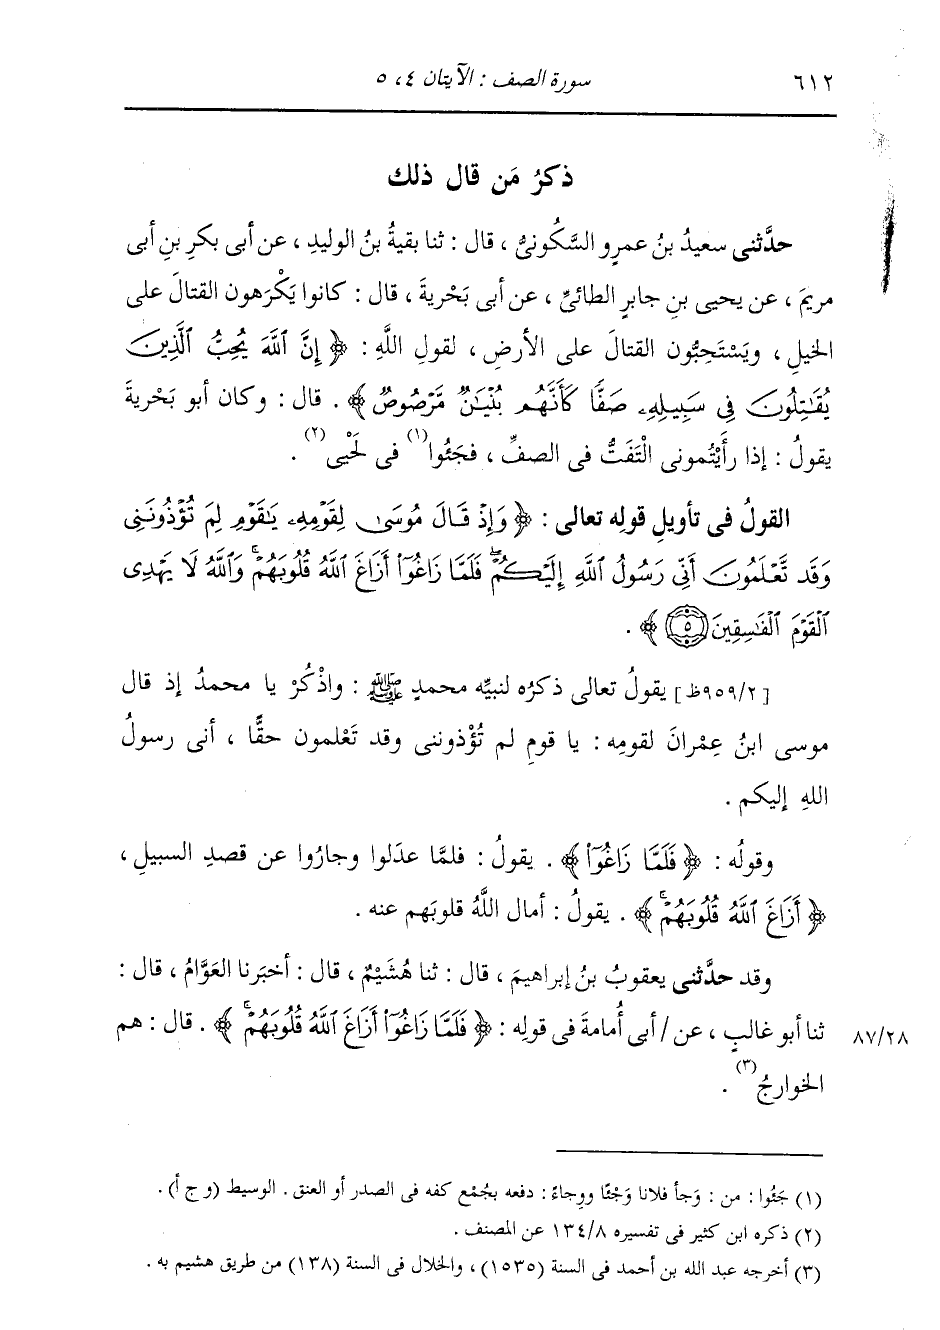 ٦١٢ سورة الصف : الآيتان ٤، ٥
ذكرُ مَن قال ذلك
حدَّثنى سعيدُ بنُ عمرٍو السَّكُونىُّ ، قال : ثنا بقيةُ بنُ الوليدِ ، عن أبى بكرِ بنِ أبى
مريمَ ، عن يحيى بنِ جابرٍ الطائىِّ ، عن أبى بَحْريةَ ، قال : كانوا يَكْرَهون القتالَ على
الخيلِ ، ويَسْتَحِبُّون القتالَ على الأرضِ ، لقولِ اللَّهِ : ﴿ إِنَّ ٱللَّهَ يُحِبُّ ٱلَّذِينَ
يُقَٰتِلُونَ فِى سَبِيلِهِۦ صَفًّا كَأَنَّهُم بُنْيَٰنٌ مَّرْصُوصٌ ﴾ . قال : وكان أبو بَحْريةَ
يقولُ : إذا رأيْتُمونى الْتَفَتُّ فى الصفِّ ، فجَئُوا(١) فى لَحْيى(٢) .
القولُ فى تأويلِ قولِه تعالى : ﴿ وَإِذْ قَالَ مُوسَىٰ لِقَوْمِهِۦ يَٰقَوْمِ لِمَ تُؤْذُونَنِى
وَقَد تَّعْلَمُونَ أَنِّى رَسُولُ ٱللَّهِ إِلَيْكُمْۖ فَلَمَّا زَاغُوٓا۟ أَزَاغَ ٱللَّهُ قُلُوبَهُمْۚ وَٱللَّهُ لَا يَهْدِى
ٱلْقَوْمَ ٱلْفَٰسِقِينَ ٥ ﴾ .
[٩٥٩/٢ظ] يقولُ تعالى ذكرُه لنبيِّه محمدٍ ﷺ : واذْكُرْ يا محمدُ إذ قال
موسى ابنُ عِمْرانَ لقومِه : يا قومِ لم تُؤْذوننى وقد تَعْلمون حقًّا ، أنى رسولُ
اللهِ إليكم .
وقولُه : ﴿ فَلَمَّا زَاغُوٓا۟ ﴾ . يقولُ : فلمَّا عدَلوا وجارُوا عن قصدِ السبيلِ ،
﴿ أَزَاغَ ٱللَّهُ قُلُوبَهُمْۚ ﴾ . يقولُ : أمال اللَّهُ قلوبَهم عنه .
وقد حدَّثنى يعقوبُ بنُ إبراهيمَ ، قال : ثنا هُشَيْمٌ ، قال : أخبَرنا العَوَّامُ ، قال :
ثنا أبو غالبٍ ، عن / أبى أُمامةَ فى قولِه : ﴿ فَلَمَّا زَاغُوٓا۟ أَزَاغَ ٱللَّهُ قُلُوبَهُمْۚ ﴾ . قال : هم
٨٧/٢٨
الخوارجُ(٣) .
(١) جَئُوا : من : وَجأ فلانا وَجْئًا ووِجاءً : دفعه بجُمْع كفه فى الصدر أو العنق . الوسيط (و ج أ) .
(٢) ذكره ابن كثير فى تفسيره ١٣٤/٨ عن المصنف .
(٣) أخرجه عبد الله بن أحمد فى السنة (١٥٣٥) ، والخلال فى السنة (١٣٨) من طريق هشيم به .